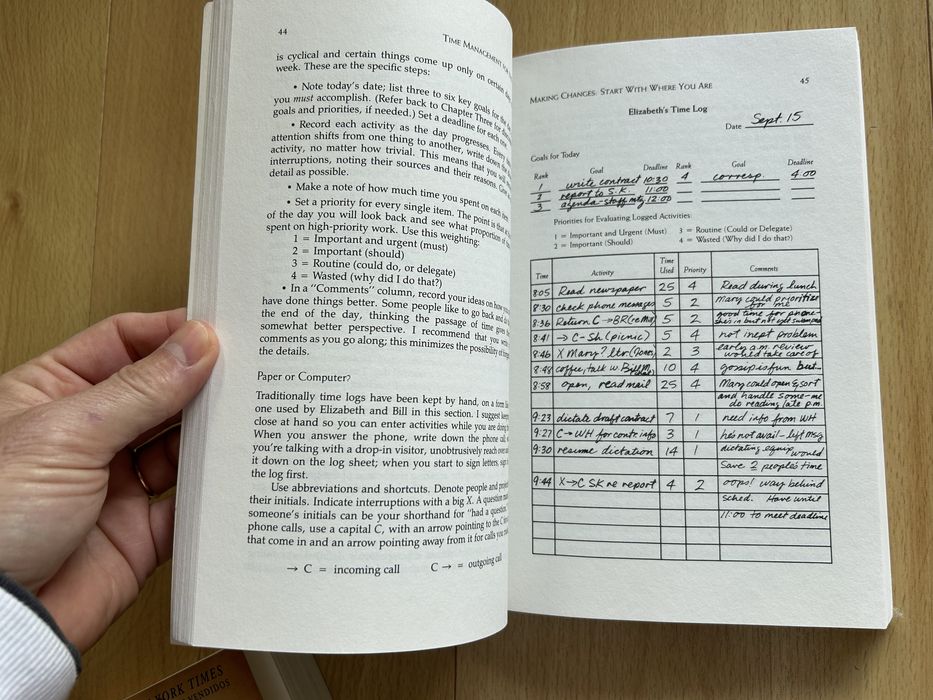 44
TIME MANAGEMENT FOR
is cyclical and certain things come up only on certain days
week. These are the specific steps:
• Note today's date; list three to six key goals for the
you must accomplish. (Refer back to Chapter Three for
goals and priorities, if needed.) Set a deadline for each one.
• Record each activity as the day progresses. Every
attention shifts from one thing to another, write down the
activity, no matter how trivial. This means that you will
interruptions, noting their sources and their reasons.
detail as possible.
• Make a note of how much time you spent on each item
• Set a priority for every single item. The point is that at
of the day you will look back and see what proportion of
spent on high-priority work. Use this weighting:
1 = Important and urgent (must)
2 = Important (should)
3 = Routine (could do, or delegate)
4 = Wasted (why did I do that?)
• In a "Comments" column, record your ideas on how you
have done things better. Some people like to go back and do
the end of the day, thinking the passage of time gives
somewhat better perspective. I recommend that you write
comments as you go along; this minimizes the possibility of
the details.
Paper or Computer?
Traditionally time logs have been kept by hand, on a form like
one used by Elizabeth and Bill in this section. I suggest keeping
close at hand so you can enter activities while you are doing
When you answer the phone, write down the phone call
you're talking with a drop-in visitor, unobtrusively reach over
it down on the log sheet; when you start to sign letters, sign
the log first.
Use abbreviations and shortcuts. Denote people and projects
their initials. Indicate interruptions with a big X. A question mark
someone's initials can be your shorthand for "had a question."
phone calls, use a capital C, with an arrow pointing to the C
that come in and an arrow pointing away from it for calls you
→ C = incoming call C → = outgoing call
MAKING CHANGES: START WITH WHERE YOU ARE 45
Elizabeth's Time Log
Date Sept. 15
Goals for Today
Rank Goal Deadline Rank Goal Deadline
1 write contract 10:30 4 corresp. 4:00
2 report to S.K. 11:00
3 agenda-staff mtg 12:00
Priorities for Evaluating Logged Activities:
1 = Important and Urgent (Must) 3 = Routine (Could or Delegate)
2 = Important (Should) 4 = Wasted (Why did I do that?)
Time Activity Time Used Priority Comments
8:05 Read newspaper 25 4 Read during lunch
8:30 check phone messages 5 2 Mary could priorities for me
8:36 Return C → BR 5 2 good time for phone- she's in but not
8:41 → C - Sh (picnic) 5 4 not inept problem
8:46 X Mary? ltr. (Jones) 2 3 early a.m. review would take care of
8:48 coffee, talk w Bill M, 10 4 gossip is fun but...
8:58 open, read mail 25 4 Mary could open & sort
and handle some-me
do reading late p.m.
9:23 dictate draft contract 7 1 need info from WH
9:27 C → WH for contr. info 3 1 he's not avail - left msg
9:30 resume dictation 14 1 dictating equip would
Save 2 people's time
9:44 X → C SK re report 4 2 oops! way behind
sched. Have until
11:00 to meet deadline
YORK TIMES
VENDIDOS